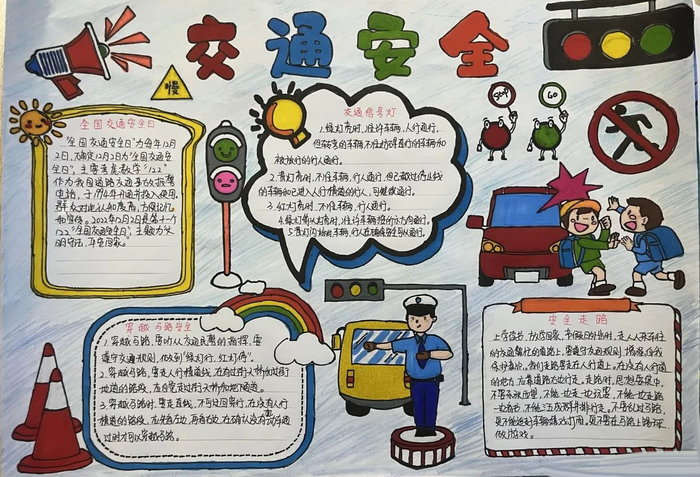 交通安全
慢
STOP
GO
全国交通安全日
"全国交通安全日"为每年12月
2日,确定12月2日为"全国交通安
全日",主要考虑数字"122"
作为我国道路交通事故报警
电话,于1994年开通并投入使用,
群众对此认知度高,方便记忆
和宣传。2022年12月2日是第十一个
122"全国交通安全日",主题为文
明守法,平安回家。"
交通信号灯
1.绿灯亮时,准许车辆、行人通行,
但转弯的车辆不准妨碍直行的车辆和
被放行的行人通行。
2.黄灯亮时,不准车辆、行人通行,但已越过停止线
的车辆和已进入人行横道的行人,可继续通行。
3.红灯亮时,不准车辆、行人通行。
4.绿灯箭头灯亮时,准许车辆按所示方向通行。
5.黄灯闪烁时,车辆、行人在确保安全可以通行。
穿越马路安全
1.穿越马路,要听从交通民警的指挥,要
遵守交通规则,做到"绿灯行,红灯停"。
2.穿越马路,要走人行横道线,在有过街天桥和过街
地道的路段,应自觉走过街天桥和地下通道。
3.穿越马路时,要走直线,不可迂回穿行,在没有人行
横道的路段,应先看左,再看右边,在确认没有车通
过时才可以穿越马路。
安全走路
上学读书,放学回家,节假日外出时,走人来车往
的交通繁忙的道路上,要遵守交通规则,增强自我
保护意识,我们走路要走在人行道上,在没有人行道
的地方,应靠道路边行走。走路时,思想要集中,
不要东张西望,不能一边走一边玩耍,不能一边走路
一边看书,不能三五成群并排行走,不要乱过马路,
更不能追赶车辆嬉戏打闹,更不要在马路上踢球
做小游戏。